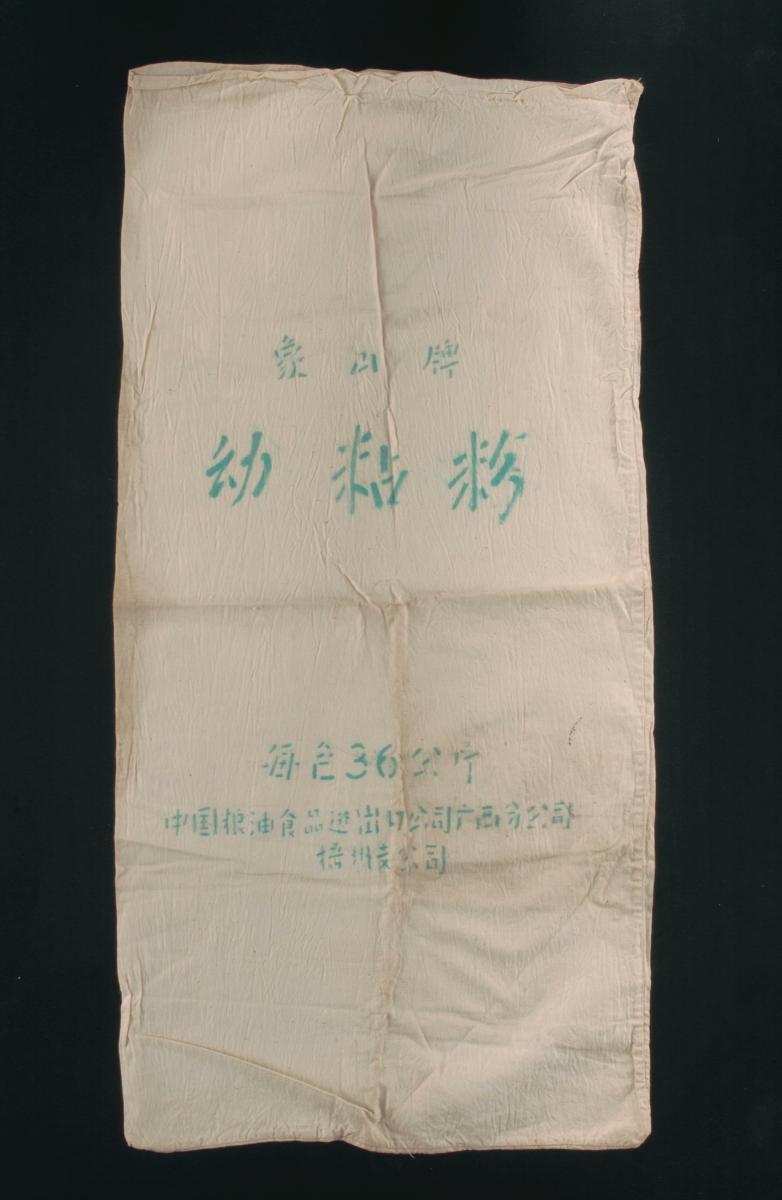 象山牌
幼粘粉
每包36公斤
中国粮油食品进出口公司广西分公司
梧州支公司